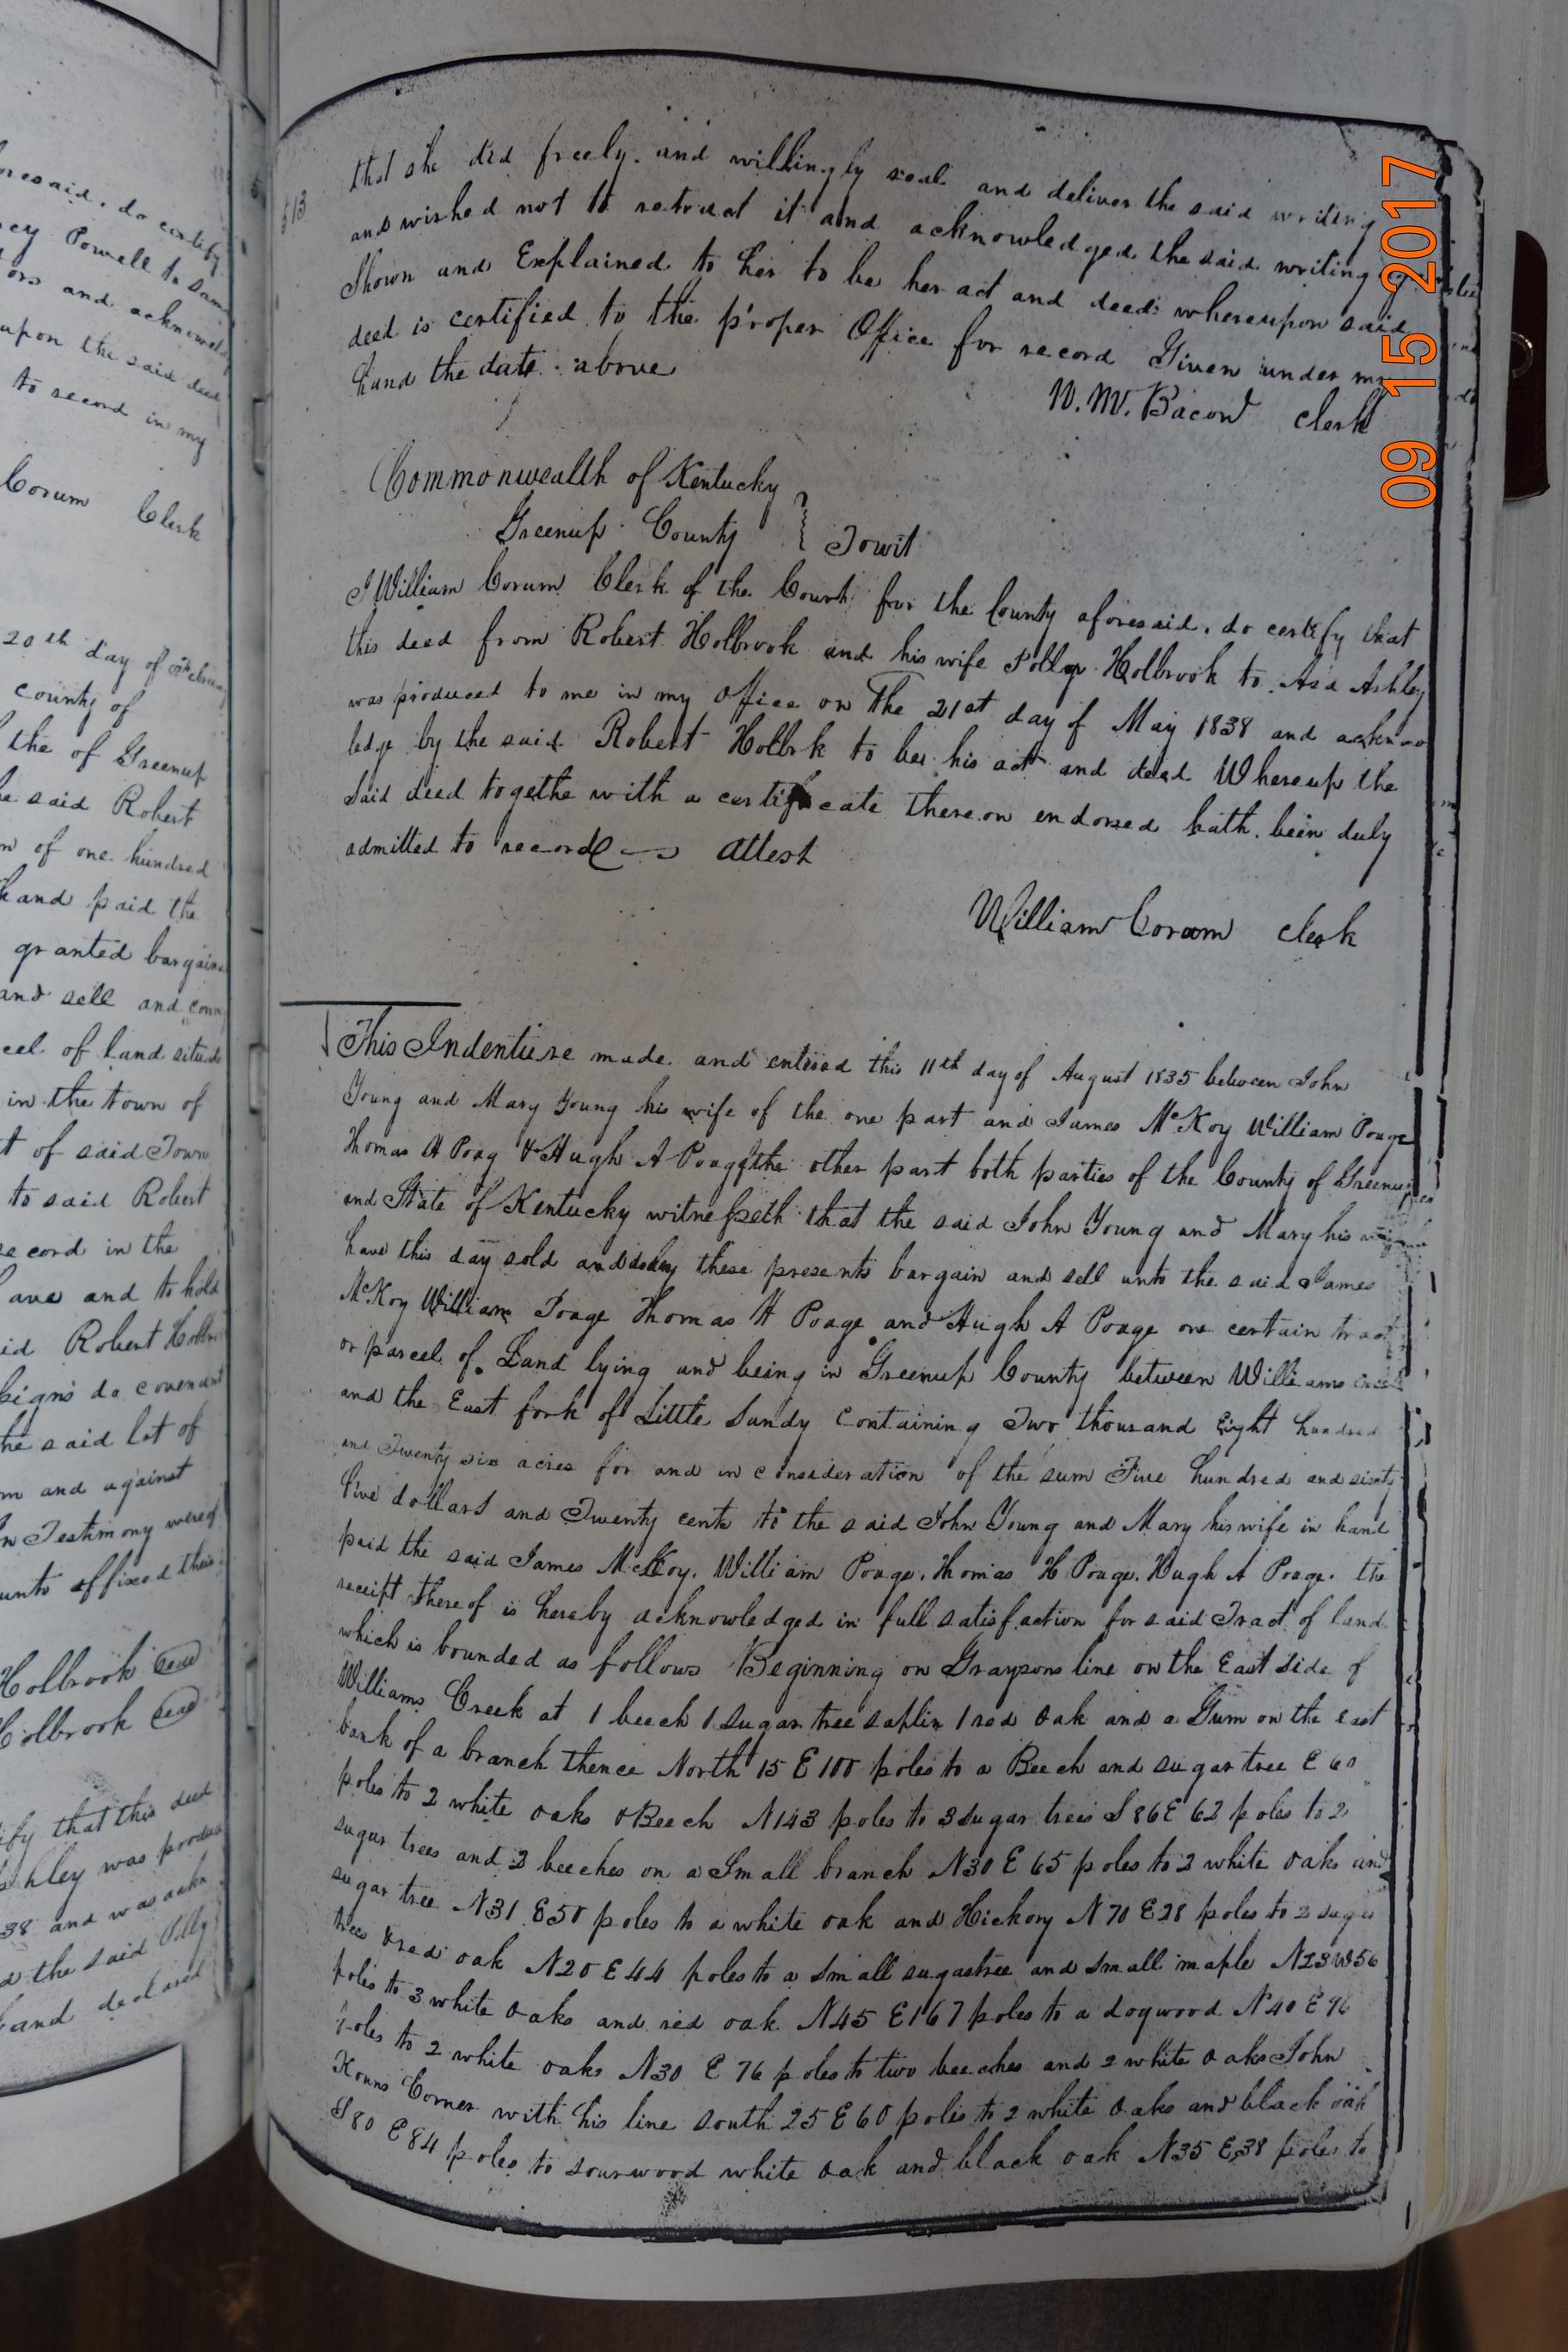 oresaid, do certify
cey Powell to Sam
ors and acknowl
upon the said deed
to record in my
Corum Clerk
20th day of Febru
county of
the of Greenup
he said Robert
n of one hundred
hand paid the
granted bargain
and sell and conv
cel of land situate
in the town of
t of said Town
to said Robert
record in the
ave and to hold
id Robert Holbr
signs do covenant
he said lot of
m and against
n Testimony wereof
unto affixed their
Holbrook Seal
Holbrook Seal
ify that this deed
shley was produ
38 and was ackn
d the said Polly
and declared
513
that she did freely and willingly seal and deliver the said writing
and wished not to retract it and acknowledged the said writing
Shown and Explained to her to be her act and deed whereupon said
deed is certified to the proper Office for record Given under my
hand the date above
W. W. Bacon Clerk
Commonwealth of Kentucky
Greenup County } Towit
I William Corum Clerk of the Court for the County aforesaid, do certify that
this deed from Robert Holbrook and his wife Polly Holbrook to Asa Ashley
was produced to me in my office on The 21st day of May 1838 and acknow
ledge by the said Robert Holbrk to be his act and deed Whereup the
Said deed togethe with a certificate thereon endorsed hath been duly
admitted to record attest
William Corum clerk
This Indentiure made and entered this 11th day of August 1835 between John
Young and Mary Young his wife of the one part and James McKoy William Poage
Thomas H Poag & Hugh A Poag of the other part both parties of the County of Greenup
and State of Kentucky witnesseth that the said John Young and Mary his wife
have this day sold and do by these presents bargain and sell unto the said James
McKoy William Poage Thomas H Poage and Hugh A Poage one certain tract
or parcel of Land lying and being in Greenup County between Williams creek
and the East fork of Little Sandy Containing Two thousand Eight hundred
and Twenty six acres for and in consideration of the sum Five hundred and sixty
five dollars and Twenty cents to the said John Young and Mary his wife in hand
paid the said James McKoy, William Poage, Thomas H Poage, Hugh A Poage. the
receipt thereof is hereby acknowledged in full satisfaction for said Tract of land
which is bounded as follows Beginning on Graysons line on the East Side of
Williams Creek at 1 beech 1 Sugar tree saplin 1 red Oak and a Gum on the east
bank of a branch thence North 15 E 100 poles to a Beech and sugar tree E 60
poles to 2 white oaks & Beech N 143 poles to 3 Sugar trees S 86 E 62 poles to 2
sugar trees and 2 beeches on a Small branch N30 E 65 poles to 2 white oaks and
sugar tree N31 E50 poles to a white oak and Hickory N 70 E 28 poles to 2 sugar
trees & red oak N20 E 44 poles to a small sugartree and small maple N23W56
poles to 3 white oaks and red oak N45 E 167 poles to a dogwood N 40 E 96
poles to 2 white oaks N30 E 76 poles to two beeches and 2 white oaks John
Kouns Corner with his line south 25 E 60 poles to 2 white oaks and black oak
S80 E 84 poles to sourwood white oak and black oak N35 E 38 poles to
09 15 2017